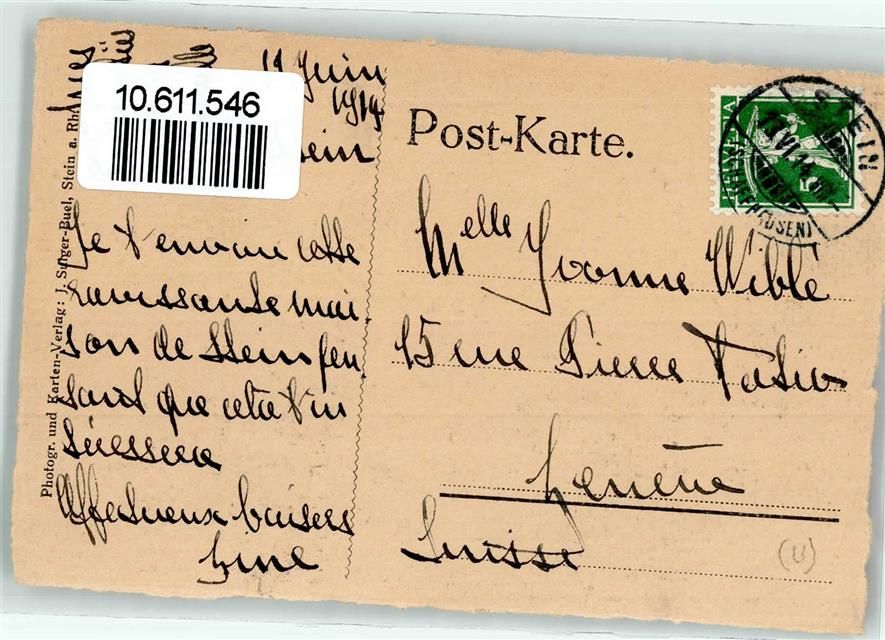 11 Juin
1914
10.611.546
Stein
Je t'envoie cette
ravissante mai
son de Stein pen
sant que cela t'in
téressera
Affectueux baisers
Zine
Photogr. und Karten-Verlag: J. Sulger-Buel, Stein a. Rh.
Post-Karte.
HELVETIA
5
STEIN
(SCHAFFHAUSEN)
Melle Yvonne Wiblé
15 rue Pierre Fatio
Genève
Suisse
(U)